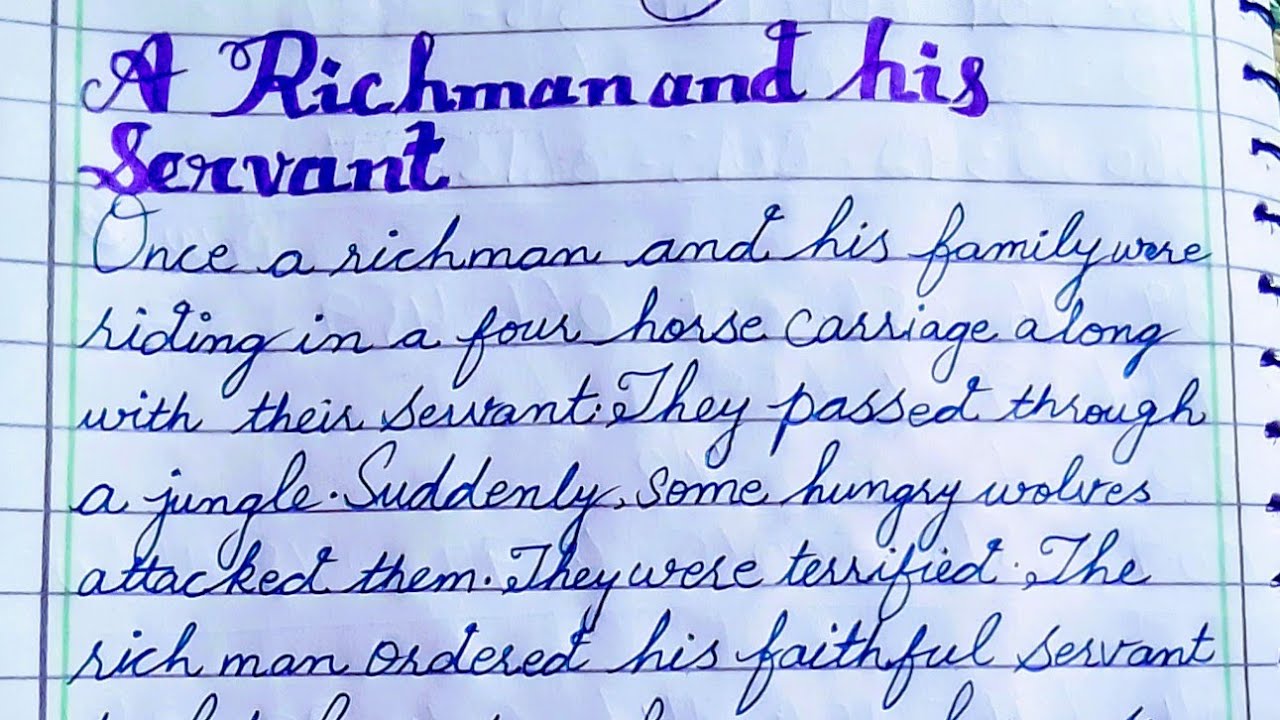 A Richman and his
Servant
Once a richman and his family were
riding in a four horse carriage along
with their servant. They passed through
a jungle. Suddenly, some hungry wolves
attacked them. They were terrified. The
rich man ordered his faithful servant